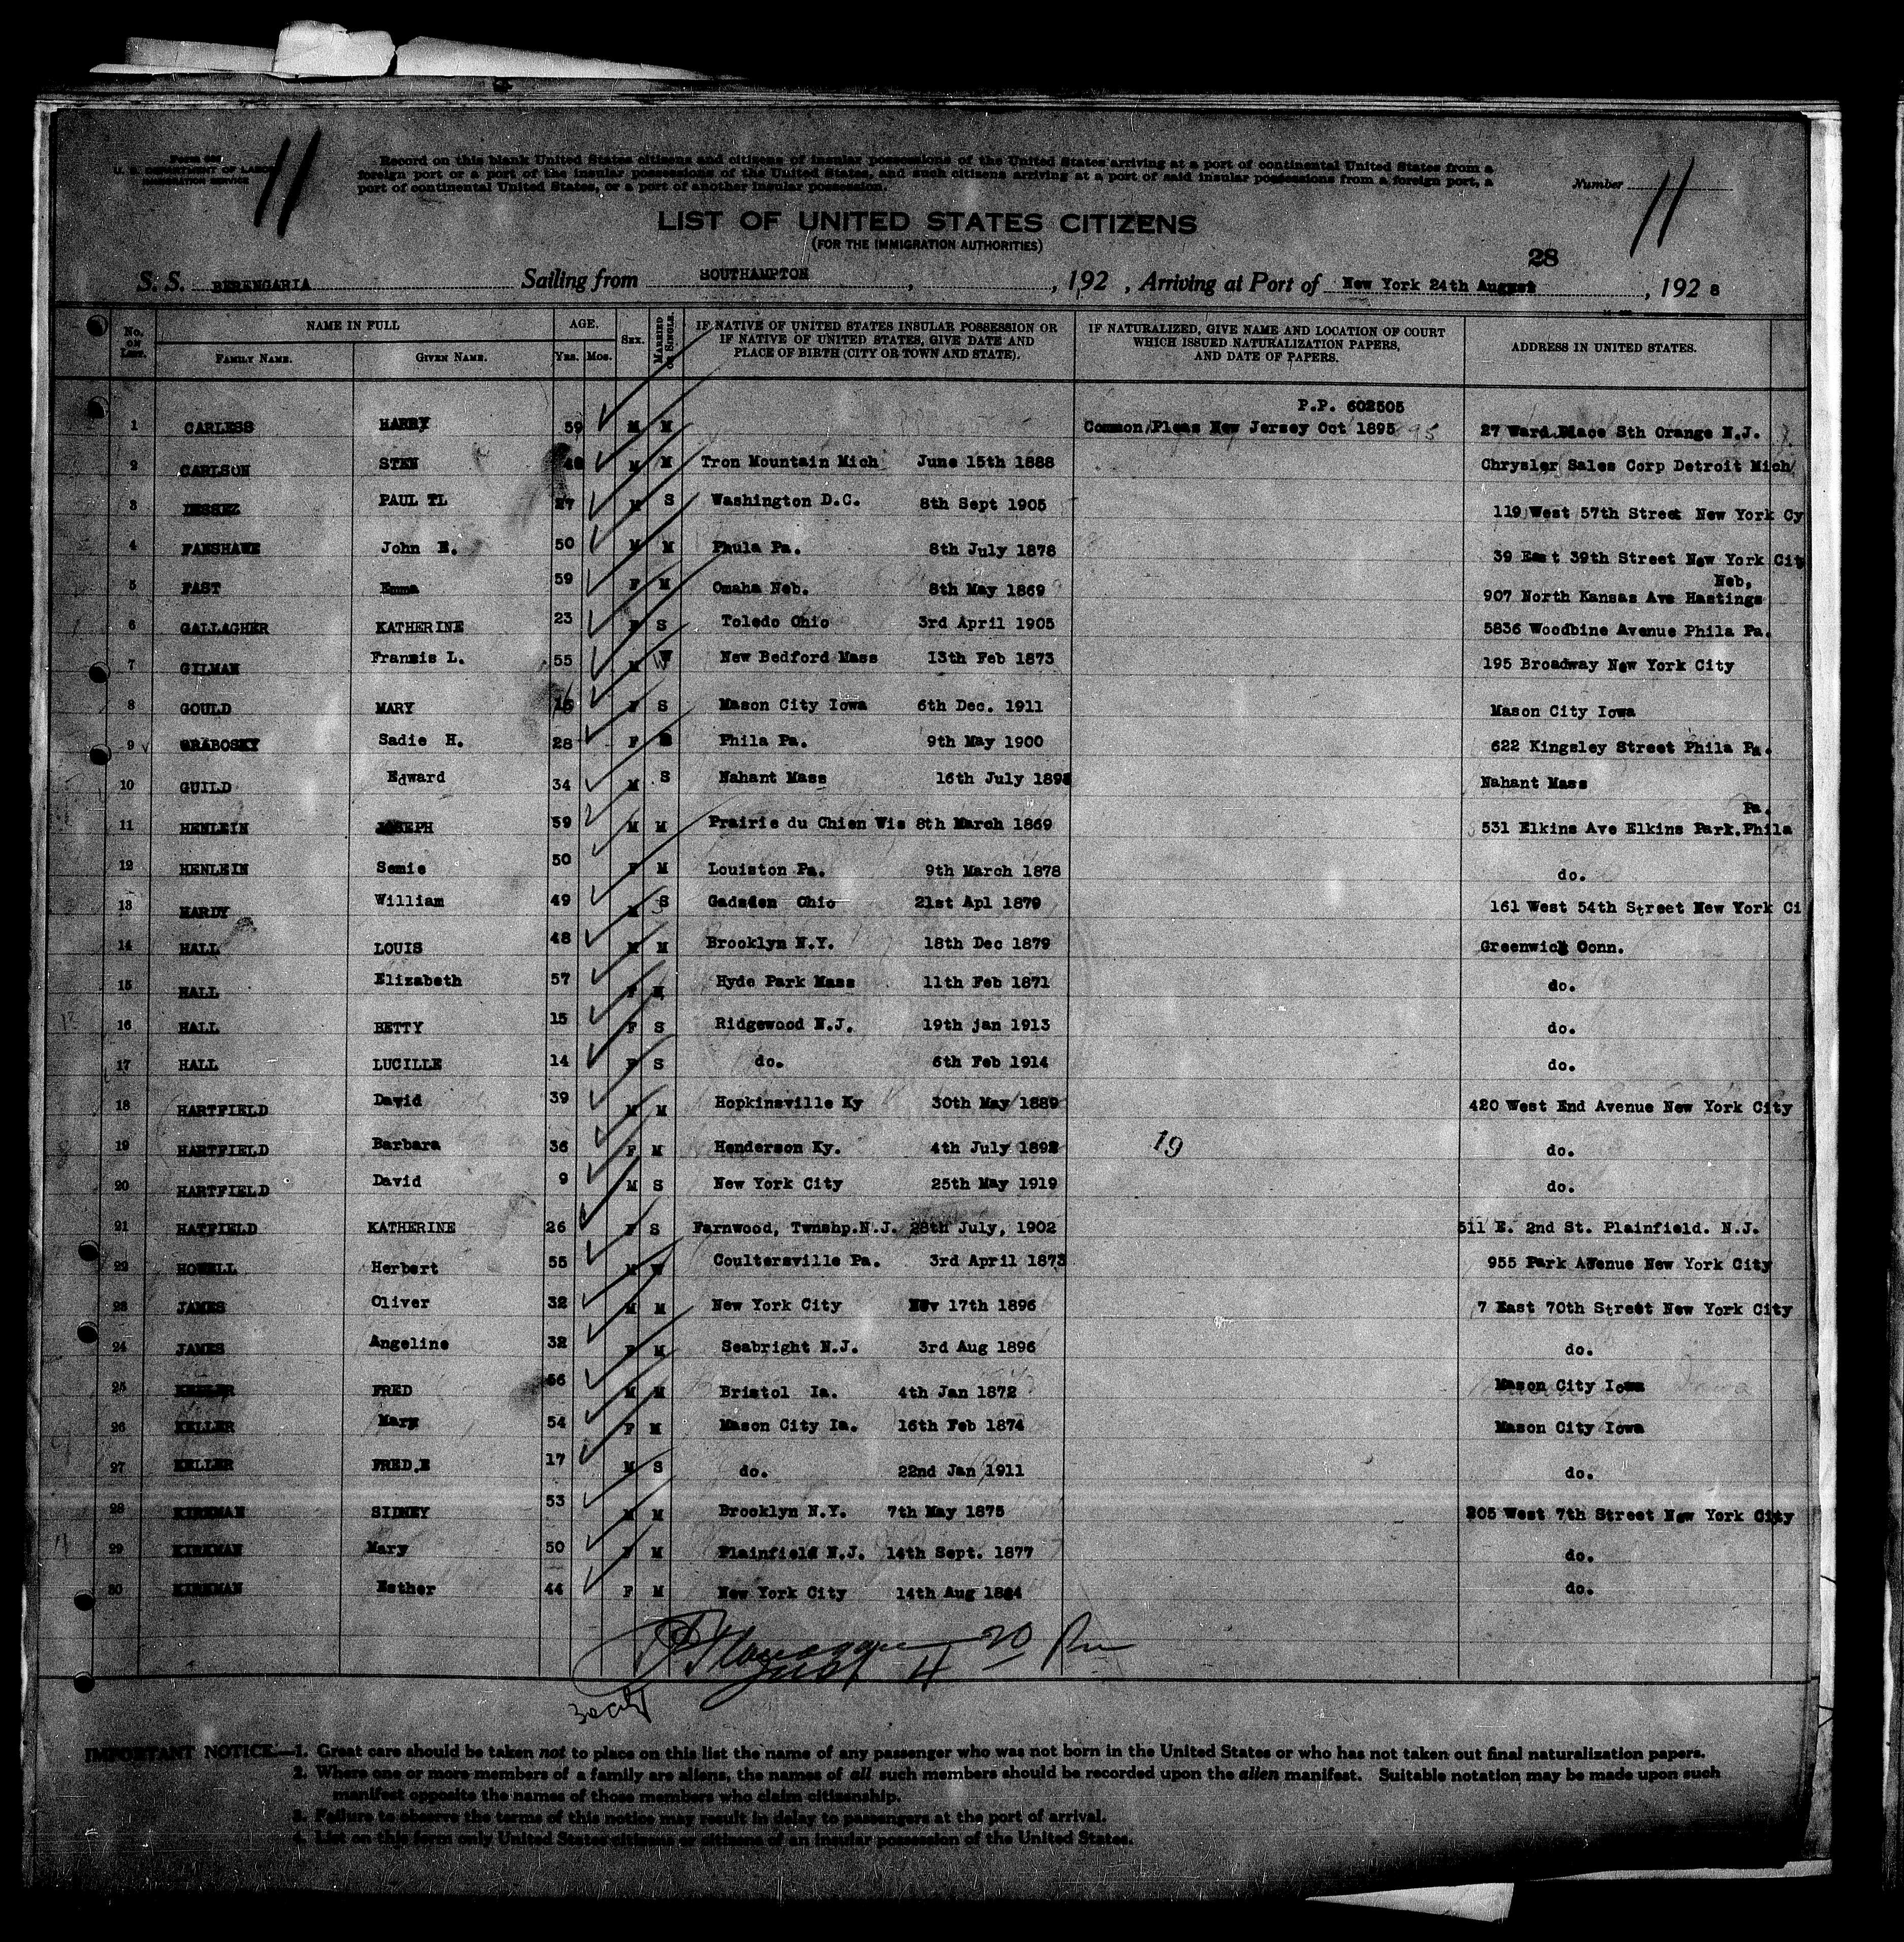 11
Form 630
U. S. DEPARTMENT OF LABOR
IMMIGRATION SERVICE
Record on this blank United States citizens and citizens of insular possessions of the United States arriving at a port of continental United States from a
foreign port or a port of the insular possessions of the United States, and such citizens arriving at a port of said insular possessions from a foreign port, a
port of continental United States, or a port of another insular possession.
Number 11
LIST OF UNITED STATES CITIZENS
(FOR THE IMMIGRATION AUTHORITIES)
28
S. S. BERENGARIA Sailing from SOUTHAMPTON , , 192 , Arriving at Port of New York 24th August , 192 8
No. ON LIST. NAME IN FULL FAMILY NAME. GIVEN NAME. AGE. Yrs. Mos. SEX. MARRIED OR SINGLE. IF NATIVE OF UNITED STATES INSULAR POSSESSION OR IF NATIVE OF UNITED STATES, GIVE DATE AND PLACE OF BIRTH (CITY OR TOWN AND STATE). IF NATURALIZED, GIVE NAME AND LOCATION OF COURT WHICH ISSUED NATURALIZATION PAPERS, AND DATE OF PAPERS. ADDRESS IN UNITED STATES.
P.P. 602505
1 CARLESS HARRY 59 M M Common Pleas New Jersey Oct 1895 27 Ward Place Sth Orange N.J.
2 CARLSON STEN M M Tron Mountain Mich June 15th 1888 Chrysler Sales Corp Detroit Mich
3 DESSEZ PAUL TL 27 M S Washington D.C. 8th Sept 1905 119 West 57th Street New York Cy
4 FANSHAWE John E. 50 M M Phula Pa. 8th July 1878 39 East 39th Street New York City
5 FAST Emma 59 F M Omaha Neb. 8th May 1869 907 North Kansas Ave Hastings Neb,
6 GALLAGHER KATHERINE 23 F S Toledo Ohio 3rd April 1905 5836 Woodbine Avenue Phila Pa.
7 GILMAN Fransis L. 55 M W New Bedford Mass 13th Feb 1873 195 Broadway New York City
8 GOULD MARY 16 F S Mason City Iowa 6th Dec. 1911 Mason City Iowa
9 GRABOSKY Sadie H. 28 F Phila Pa. 9th May 1900 622 Kingsley Street Phila Pa.
10 GUILD Edward 34 M S Nahant Mass 16th July Nahant Mass
11 HENLEIN JOSEPH 59 M M Prairie du Chien Wis 8th March 1869 531 Elkins Ave Elkins Park.Phila Pa.
12 HENLEIN Semie 50 F M Louiston Pa. 9th March 1878 do.
13 HARDY William 49 M S Gadsden Ohio 21st Apl 1879 161 West 54th Street New York Ci
14 HALL LOUIS 48 M M Brooklyn N.Y. 18th Dec 1879 Greenwich Conn.
15 HALL Elizabeth 57 F M Hyde Park Mass 11th Feb 1871 do.
16 HALL BETTY 15 F S Ridgewood N.J. 19th jan 1913 do.
17 HALL LUCILLE 14 F S do. 6th Feb 1914 do.
18 HARTFIELD David 39 M M Hopkinsville Ky 30th May 1889 420 West End Avenue New York City
19 HARTFIELD Barbara 36 F M Henderson Ky. 4th July 1892 19 do.
20 HARTFIELD David 9 M S New York City 25th May 1919 do.
21 HATFIELD KATHERINE 26 F S Farnwood, Twnshp.N.J. 28th July, 1902 511 E. 2nd St. Plainfield. N.J.
22 HOWELL Herbert 55 M W Coultersville Pa. 3rd April 1873 955 Park Avenue New York City
23 JAMES Oliver 32 M M New York City Nov 17th 1896 7 East 70th Street New York City
24 JAMES Angeline 32 F M Seabright N.J. 3rd Aug 1896 do.
25 KELLER FRED 56 M M Bristol Ia. 4th Jan 1872 Mason City Iowa
26 KELLER Mary 54 F M Mason City Ia. 16th Feb 1874 Mason City Iowa
27 KELLER FRED.E 17 M S do. 22nd Jan 1911 do.
28 KIRKMAN SIDNEY 53 M M Brooklyn N.Y. 7th May 1875 205 West 7th Street New York City
29 KIRKMAN Mary 50 F M Plainfield N.J. 14th Sept. 1877 do.
30 KIRKMAN Esther 44 F M New York City 14th Aug 1884 do.
20
4
IMPORTANT NOTICE.—1. Great care should be taken not to place on this list the name of any passenger who was not born in the United States or who has not taken out final naturalization papers.
2. Where one or more members of a family are aliens, the names of all such members should be recorded upon the alien manifest. Suitable notation may be made upon such
manifest opposite the names of those members who claim citizenship.
3. Failure to observe the terms of this notice may result in delay to passengers at the port of arrival.
4. List on this form only United States citizens or citizens of an insular possession of the United States.